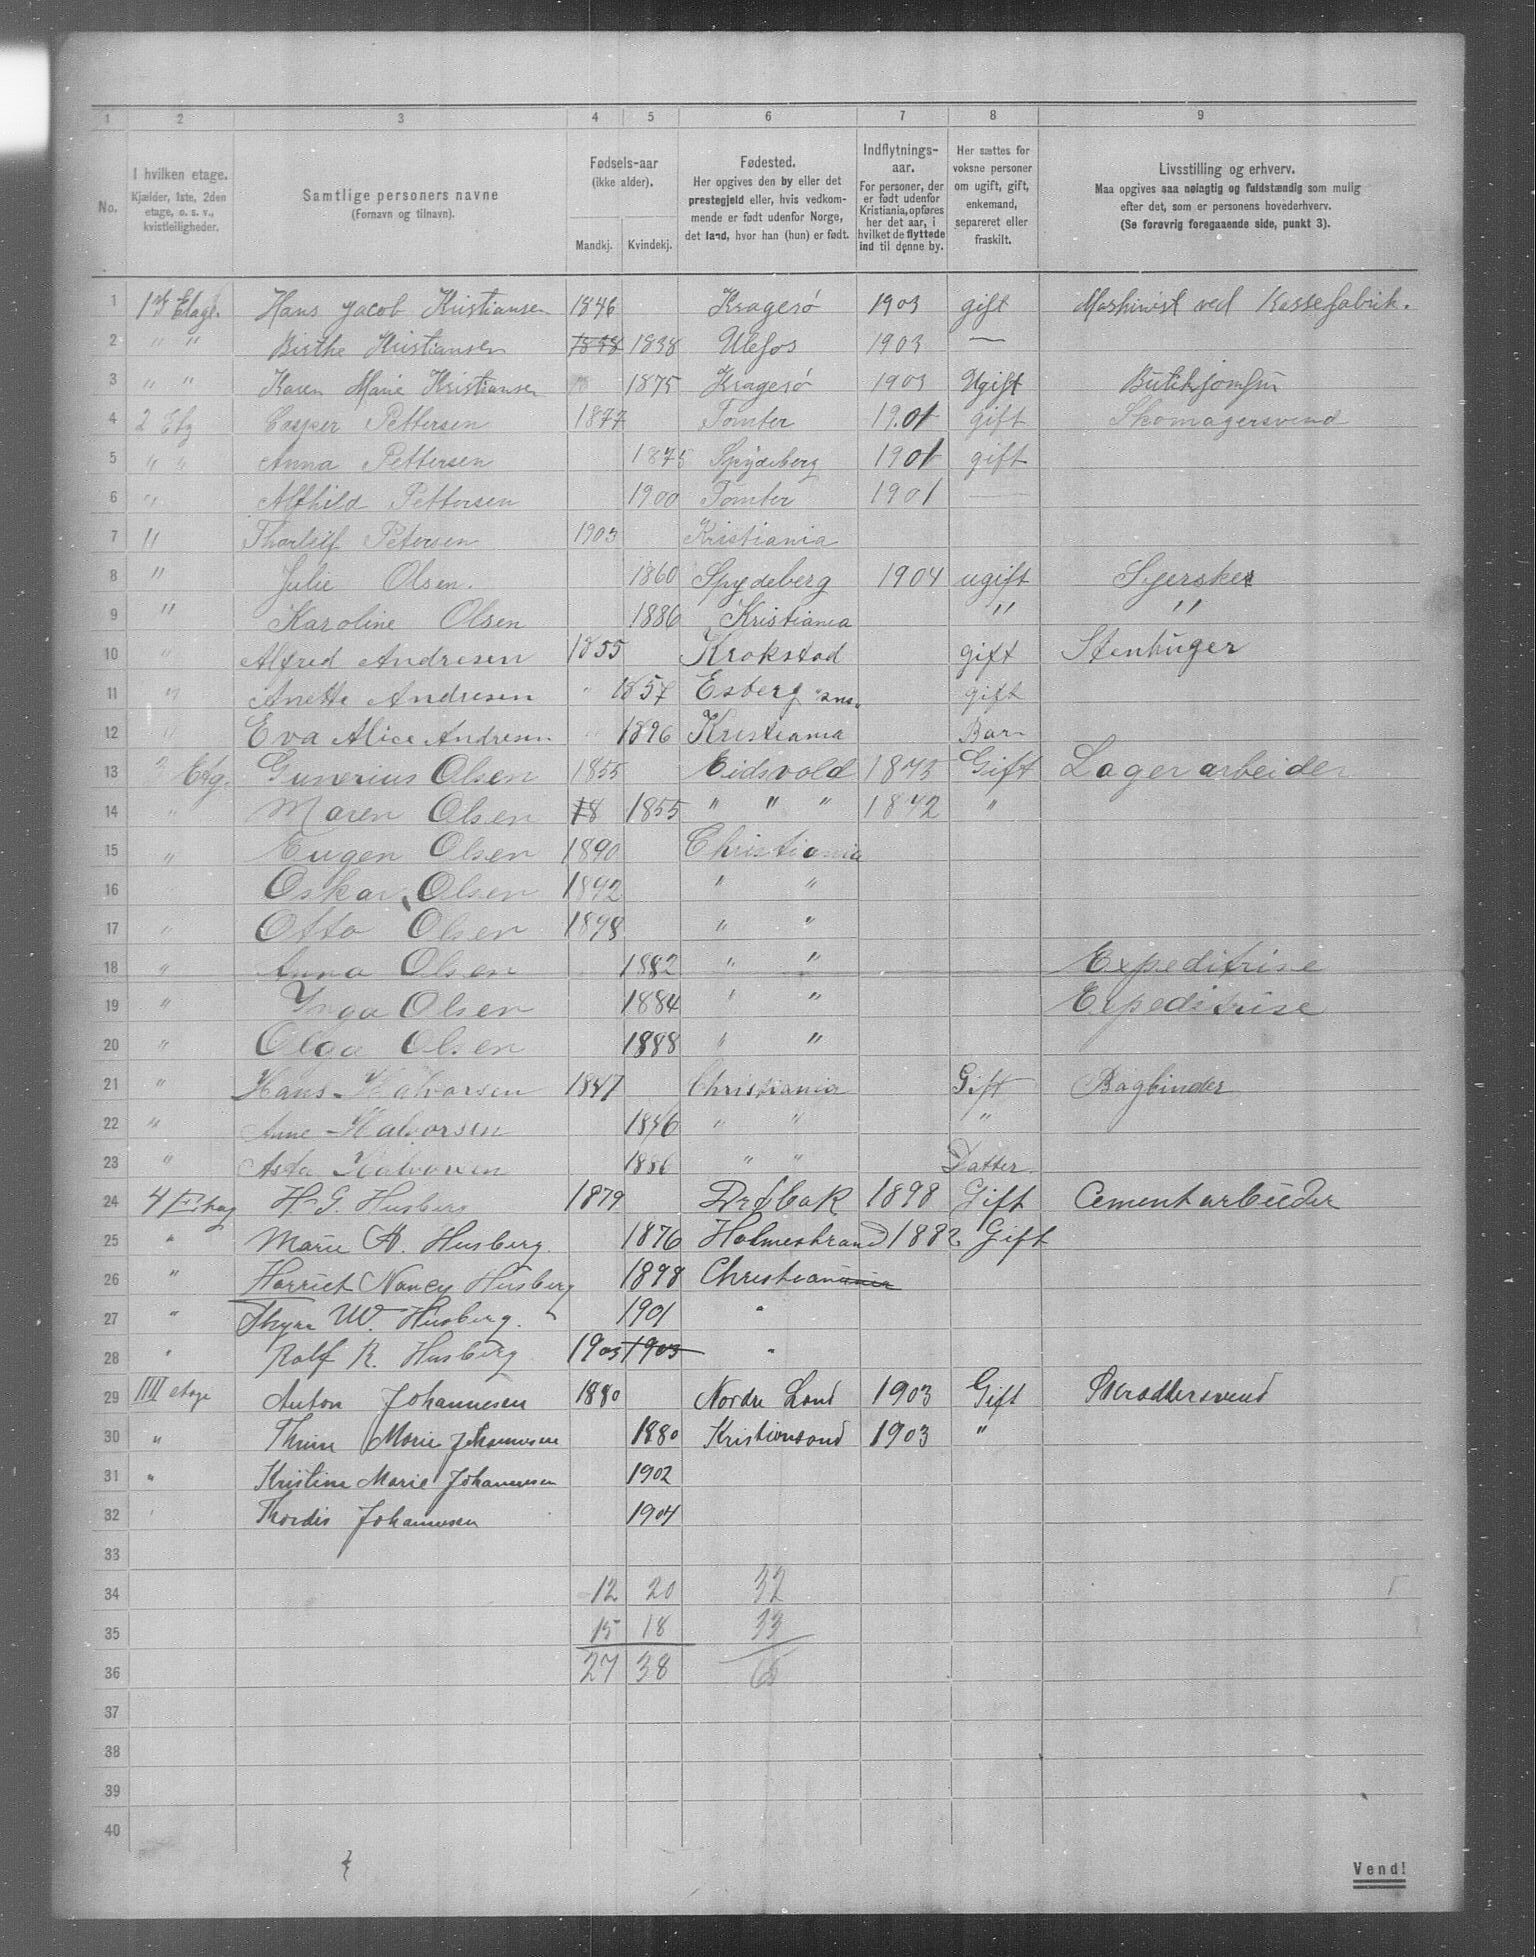 1 2 3 4 5 6 7 8 9
No.
I hvilken etage.
Kjælder, 1ste, 2den
etage, o. s. v.,
kvistleiligheder.
Samtlige personers navne
(Fornavn og tilnavn).
Fødsels-aar
(ikke alder).
Mandkj. Kvindekj.
Fødested.
Her opgives den by eller det
prestegjeld eller, hvis vedkom-
mende er født udenfor Norge,
det land, hvor han (hun) er født.
Indflytnings-
aar.
For personer, der
er født udenfor
Kristiania, opføres
her det aar, i
hvilket de flyttede
ind til denne by.
Her sættes for
voksne personer
om ugift, gift,
enkemand,
separeret eller
fraskilt.
Livsstilling og erhverv.
Maa opgives saa nøiagtig og fuldstændig som mulig
efter det, som er personens hovederhverv.
(Se forøvrig foregaaende side, punkt 3).
1 1st Etage. Hans Jacob Kristiansen 1846 Kragesø 1903 gift Maskinist ved Kassefabrik.
2 " " Birthe Kristiansen 1838 1838 Ulefos 1903 —
3 " " Karen Marie Kristiansen 1875 Kragesø 1903 Ugift Butikjomfru
4 2 Etg Casper Pettersen 1877 Tomter 1901 gift Skomagersvend
5 " " Anna Pettersen 1875 Spydeberg 1901 gift
6 " Alfhild Pettersen 1900 Tomter 1901 —
7 " Thorleif Petersen 1903 Kristiania
8 " Julie Olsen. 1860 Spydeberg 1904 ugift Syerske
9 " Karoline Olsen 1886 Kristiania " "
10 " Alfred Andresen 1855 Krokstad gift Stenhuger
11 " Anette Andresen " 1857 Esberg gift
12 " Eva Alice Andresen 1896 Kristiania Barn
13 3 Etg. Gunerius Olsen 1855 Eidsvold 1873 Gift Lagerarbeider
14 " Maren Olsen 18 1855 " " " 1872 "
15 " Eugen Olsen 1890 Christiania
16 Oskar Olsen 1892 " "
17 " Otto Olsen 1898 " "
18 " Anna Olsen 1882 " " Expeditrise
19 " Inga Olsen 1884 " " Expeditrise
20 " Olga Olsen 1888 " "
21 " Hans Halvorsen 1847 Christiania Gift Bogbinder
22 " Anne Halvorsen 1846 " " "
23 " Asta Halvorsen 1886 " " Datter.
24 4 Etag H. G. Husberg 1879 Drøbak 1898 Gift Cementarbeider
25 " Marie A. Husberg. 1876 Holmestrand 1882 Gift
26 " Harriet Nancy Husberg 1898 Christiania
27 " Thyra W. Husberg. 1901 "
28 " Rolf R. Husberg 1903 1903 "
29 IIII etage Anton Johannesen 1880 Nordre Land 1903 Gift Skrædersvend
30 " Thrine Marie Johannesen 1880 Kristiansand 1903 "
31 " Kristine Marie Johannesen 1902
32 Thordis Johannesen 1904
33
34 12 20 32
35 15 18 33
36 27 38 65
37
38
39
40
Vend!